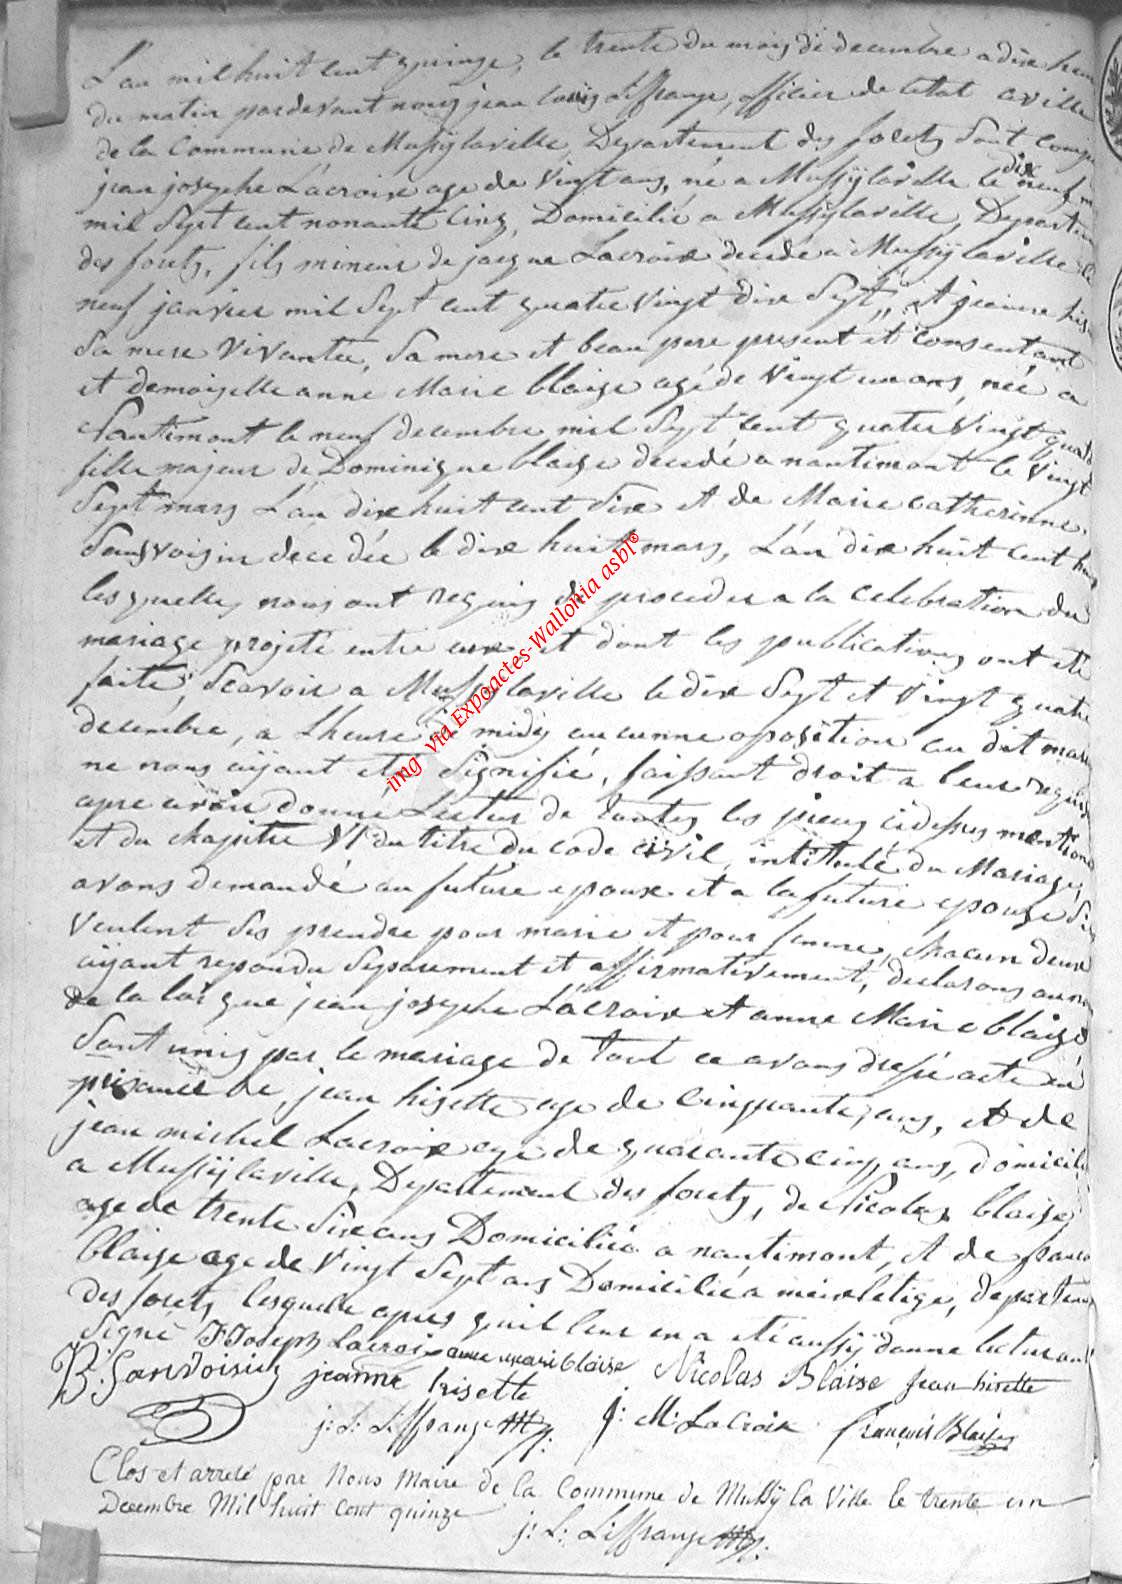 L'an mil huit cent quinze, le trente du mois de decembre a dix heur
du matin pardevant nous jean louis Liffrange, officier de letat civille
de la Commune de Mussylaville, Departement des forets sont comp
jean josephe Lacroix age de vingt ans, né a Mussÿlaville le dix neuf m
mil sept cent nonante cinq, Domicilié a Mussÿlaville, Departem
des forets, fils mineur de jacque Lacroix decedé a Mussÿlaville le
neuf janvier mil sept cent quatre vingt dix sept, et jeanne his
sa mere vivante, sa mere et beau pere present et consentant
et demoiselle anne Marie blaise agé de vingt un ans, née a
Nantimont le neuf decembre mil sept cent quatre vingt quato
fille majeur de Dominique blaise decedé a nantimont le vingt
sept mars L'an dix huit cent dix et de Marie catherinne
Sanvoisin decedée le dix huit mars, L'an dix huit cent hui
lesquelles nous ont requis de proceder a la celebration du
mariage projeté entre eux et dont les publications ont été
faite, scavoir a Mussÿlaville le dix sept et vingt quatre
decembre, a Lheure de midy aucunne oposition au dit maria
ne nous aÿant eté signifié, faissant droit a leur requis
apre avoir donné Lecteur de toutes les pieces cidessus mention
et du chapitre VI du titre du code civil, intitulé du Mariage,
avons demandé au future epoux et a la future epouse si
veulent ses prendre pour marie et pour femme, chacun deux
aÿant repondu separement et affirmativement, declarons au no
de la loi que jean josephe Lacroix et anne Marie blaise
sont unis par le mariage de tout ce avons dressé acte en
presance de jean hisette age de cinquante ans, et de
jean michel Lacroix agé de quarante cinq ans, domicili
a Mussÿlaville, Departement des forets, de Nicolas blaise
age de trente six ans Domicilié a nantimont, et de franco
blaise age de vingt sept ans Domicilié a meixletige, departem
des forets, lesquelle apres quil leur en a eté aussÿ donne lecture ont
signé JJoseph Lacroix anne marie blaise Nicolas Blaise jean hisette
B. Sanvoisin jeanne hisette
j: L: Liffrange J: M: LaCroix françois Blaise
Clos et arreté par Nous Maire de la Commune de Mussy la ville le trente un
Decembre Mil huit cent quinze
j: L: Liffrange
img via Expoactes-Wallonia asbl®